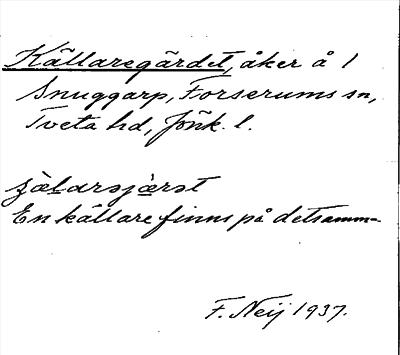 Källaregärdet, åker å 1
Snuggarp, Forserums sn,
Tveta hd, Jönk. l.
En källare finns på detsamma
F. Neij 1937.